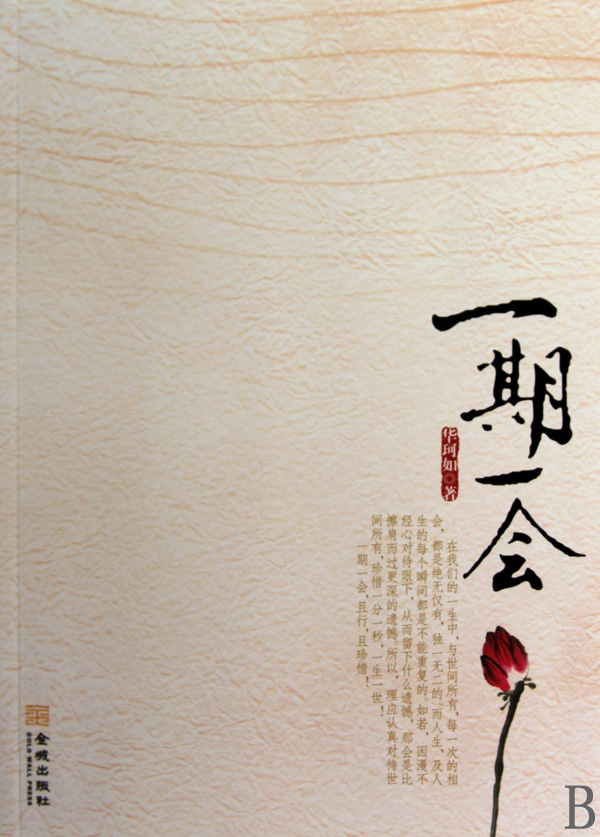 一期一会
华珂如 著
在我们的一生中，与世间所有，每一次的相
会，都是绝无仅有，独一无二的。而人生，及人
生的每个瞬间都是不能重复的。如若，因漫不
经心对待眼下，从而留下什么遗憾，那会是比
擦肩而过更深的遗憾。所以，理应认真对待世
间所有，珍惜一分一秒，一生一世！
一期一会，且行，且珍惜！
金城出版社
GOLD WALL PRESS
B